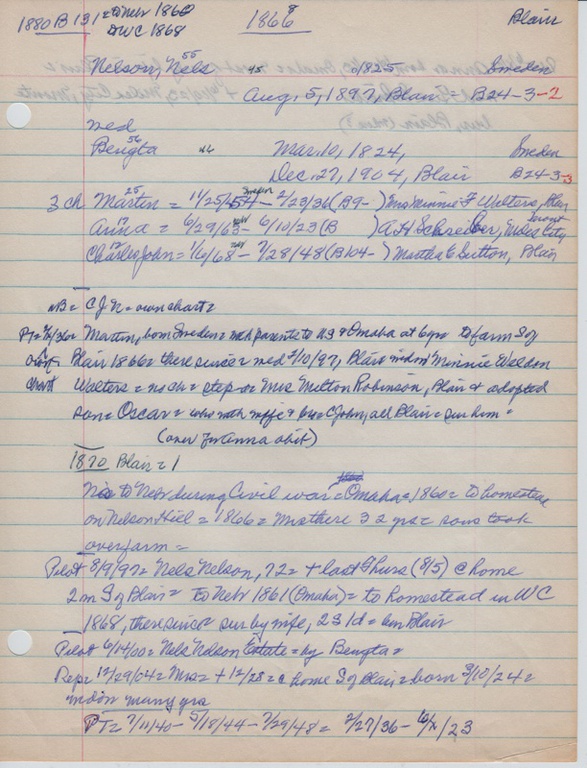 1880 B 13 1 = to Nebr 1860 1866 8 Blair
DWC 1868
Nelson, Nels 55 45 0/1825 Sweden
Aug. 5, 1897, Blair = B24-3-2
med
Bengta 56 46 Mar. 10, 1824, Sweden
Dec. 27, 1904, Blair B24-3-3
3 ch Martin 25 = 11/25/54 Sweden - 2/23/36 (B9- ) Mrs Minnie F Walters, Blair
Anna 17 = 6/29/63 Neb - 6/10/23 (B ) A H Schreiber, Mo Valley
Charles John 12 = 1/6/68 Neb - 7/28/48 (B104- ) Martha E Sutton, Blair
NB = C J N = own chart =
PT = 2/27/36 = Martin, born Sweden = with parents to US & Omaha at 6 yrs = to farm S of
own chart Blair 1866 = there since = med 2/10/97, Blair widow Minnie Weldon
Walters = no ch = step-dr Mrs Milton Robinson, Blair & adopted
son = Oscar = who with wife & bro = C John, all Blair = sur him =
(over for Anna obit)
1870 Blair = 1
N is to Nebr during Civil war = Omaha = 1860 = to homestead
on Nelson Hill = 1866 = Mrs there 32 yrs = sons took
over farm =
Pilot 8/9/97 = Nels Nelson, 72 = + last Thurs (8/5) @ home
2m S of Blair = to Nebr 1861 (Omaha) = to homestead in WC
1868, there since = sur by wife, 2 S 1 d = bur Blair
Pilot 6/14/00 = Nels Nelson Estate = by Bengta =
Rep = 12/29/04 = Mrs = + 12/28 = @ home S of Blair = born 3/10/24 =
widow many yrs
PT = 7/11/40 - 5/18/44 - 7/29/48 = 2/27/36 - 6/ /23